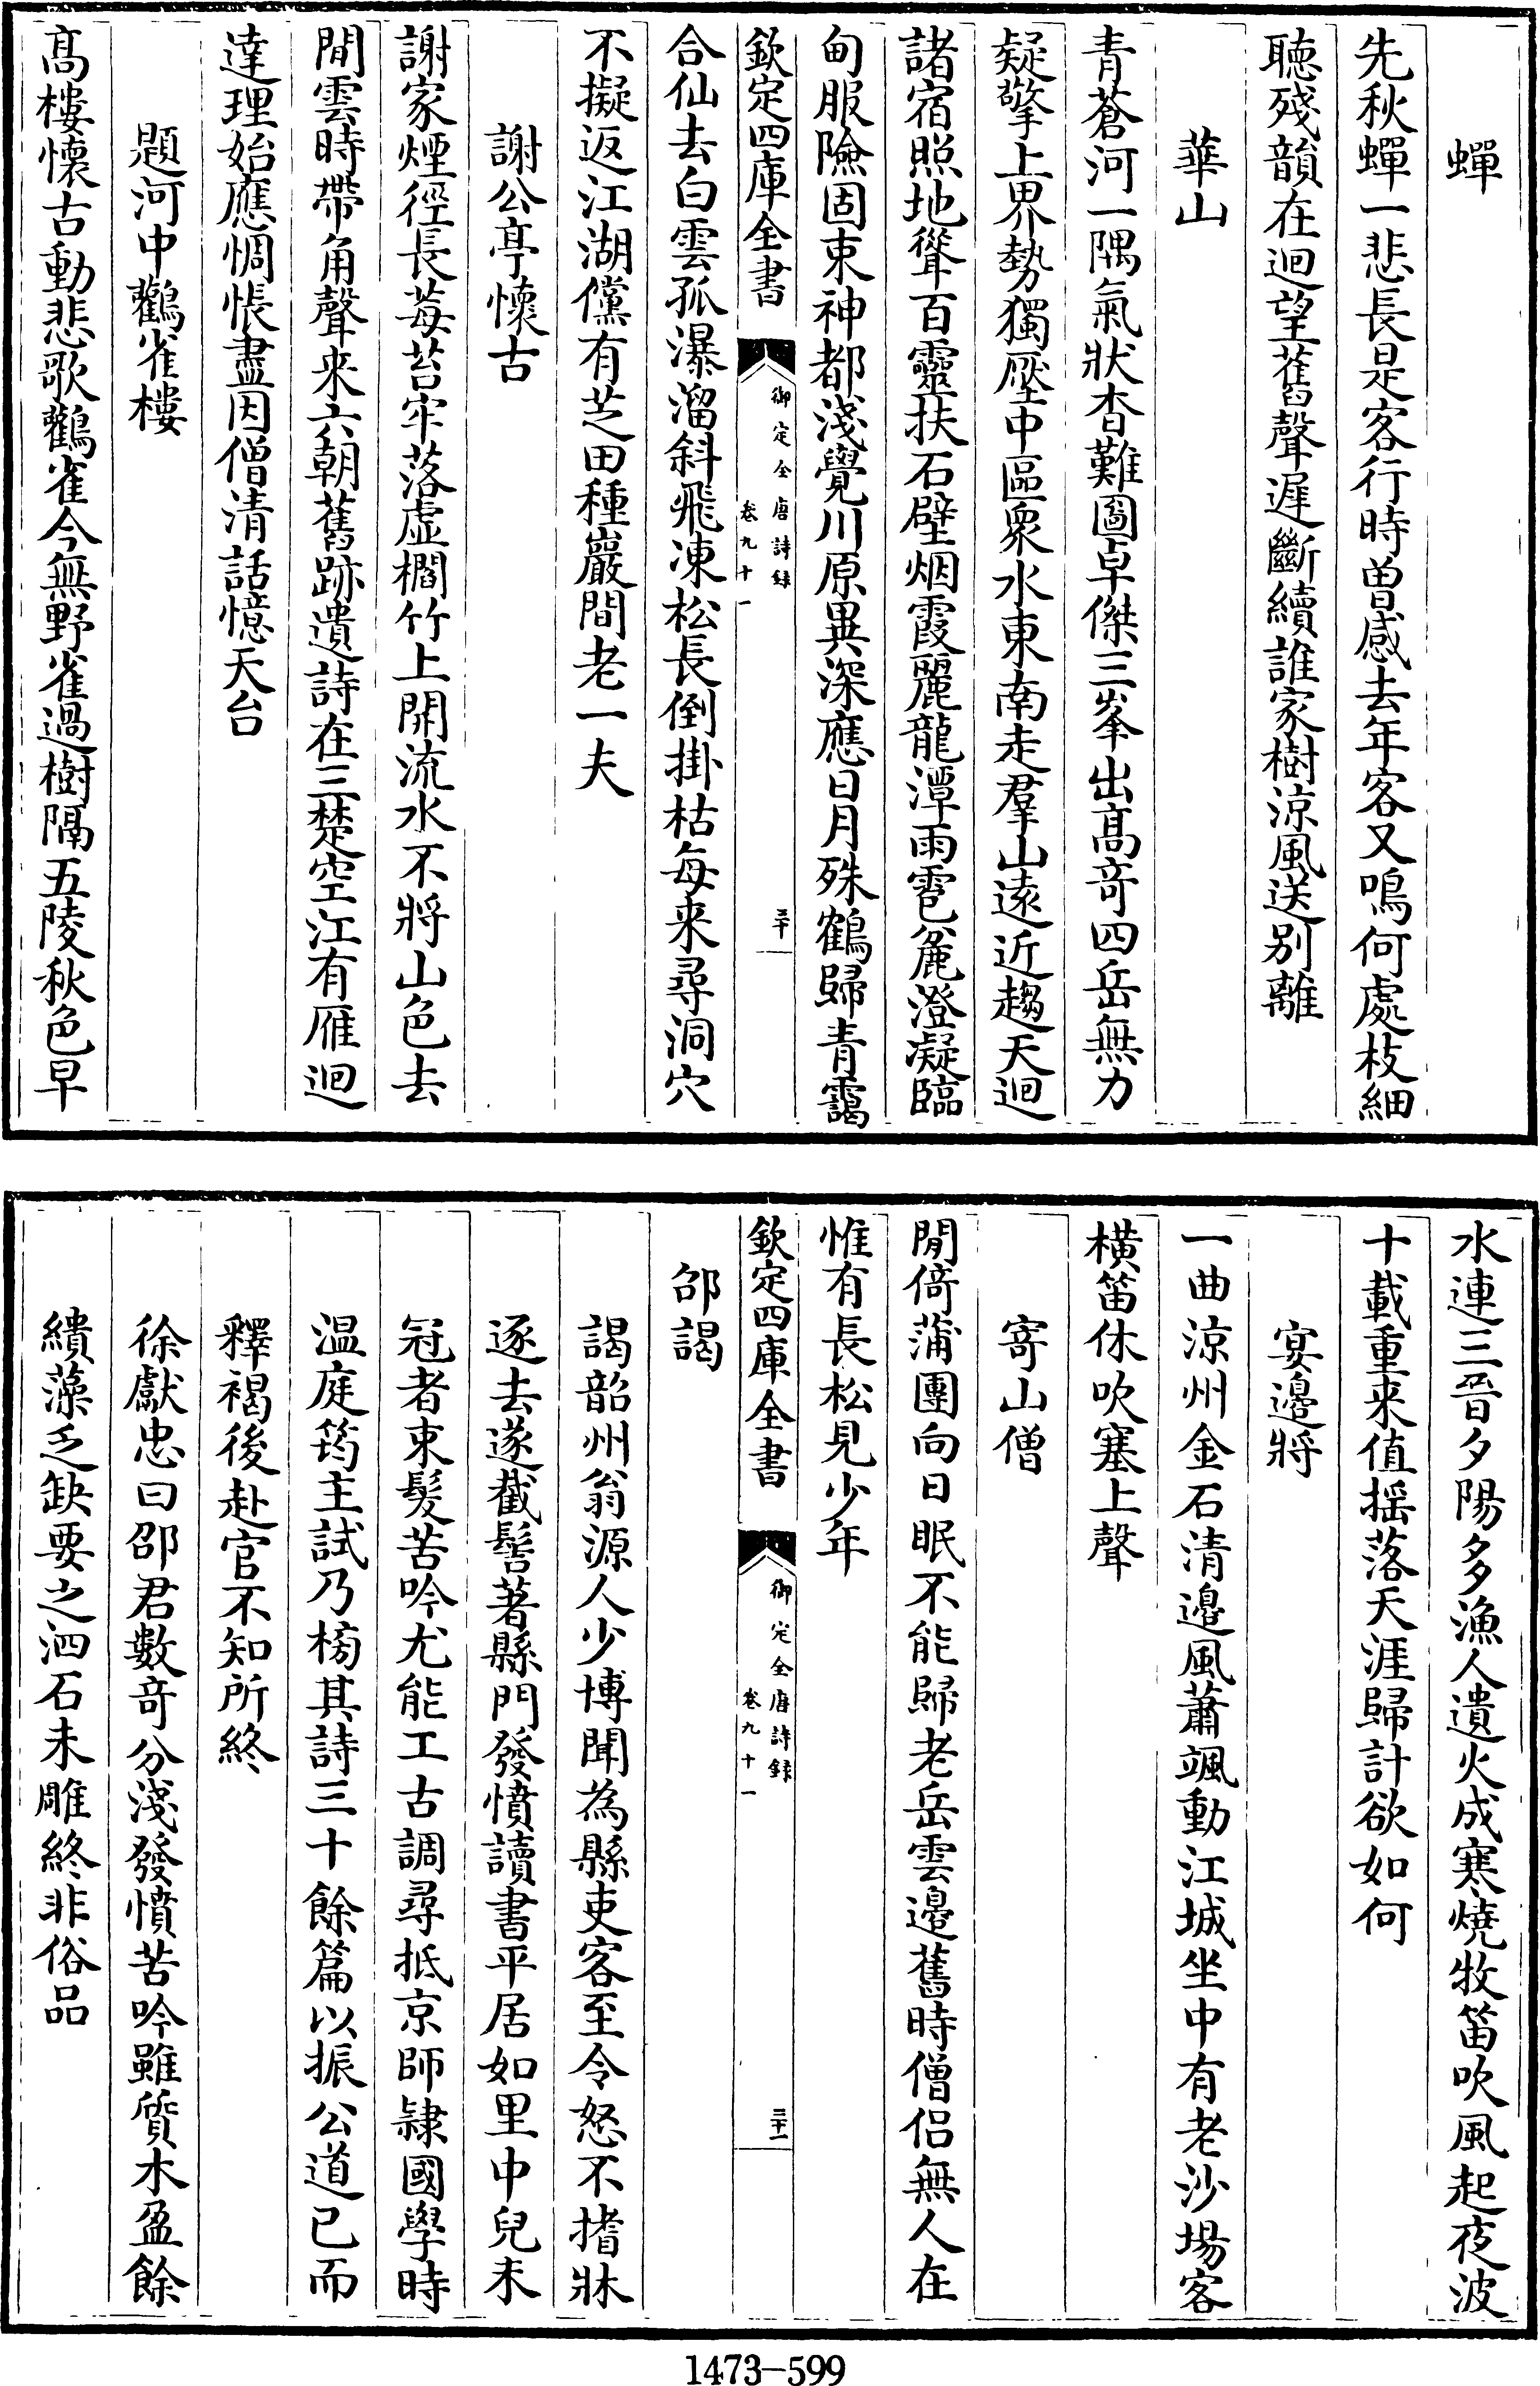 蟬
先秋蟬一悲長是客行時曽感去年客又鳴何處枝細
聴殘韻在迴望舊聲遲斷續誰家樹涼風送别離
華山
青蒼河一隅氣狀杳難圖卓傑三峯出髙竒四岳無力
疑擎上界勢獨壓中區衆水東南走羣山遠近趨天迴
諸宿照地聳百靈扶石壁烟霞麗龍潭雨雹麄澄凝臨
甸服險固束神都淺覺川原異深應日月殊鶴歸青靄
合仙去白雲孤瀑溜斜飛凍松長倒掛枯每来尋洞穴
不擬返江湖儻有芝田種巖間老一夫
謝公亭懷古
謝家煙徑長莓苔牢落虛櫩竹上開流水不將山色去
閒雲時帶角聲来六朝舊跡遺詩在三楚空江有雁迴
達理始應惆悵盡因僧清話憶天台
題河中鸛雀樓
髙樓懷古動悲歌鸛雀今無野雀過樹隔五陵秋色早
欽定四庫全書
御定全唐詩録
卷九十一
三十
水連三晉夕陽多漁人遺火成寒燒牧笛吹風起夜波
十載重来值揺落天涯歸計欲如何
宴邊將
一曲涼州金石清邊風蕭颯動江城坐中有老沙場客
横笛休吹塞上聲
寄山僧
閒倚蒲團向日眠不能歸老岳雲邊舊時僧侣無人在
惟有長松見少年
欽定四庫全書
御定全唐詩録
卷九十一
三十一
邵謁
謁韶州翁源人少博聞為縣吏客至令怒不搘牀
逐去遂截髻著縣門發憤讀書平居如里中兒未
冠者束髮苦吟尤能工古調尋抵京師隸國學時
温庭筠主試乃榜其詩三十餘篇以振公道已而
釋褐後赴官不知所終
徐獻忠曰邵君數竒分淺發憤苦吟雖質木盈餘
繢藻乏缺要之泗石未雕終非俗品
1473-599